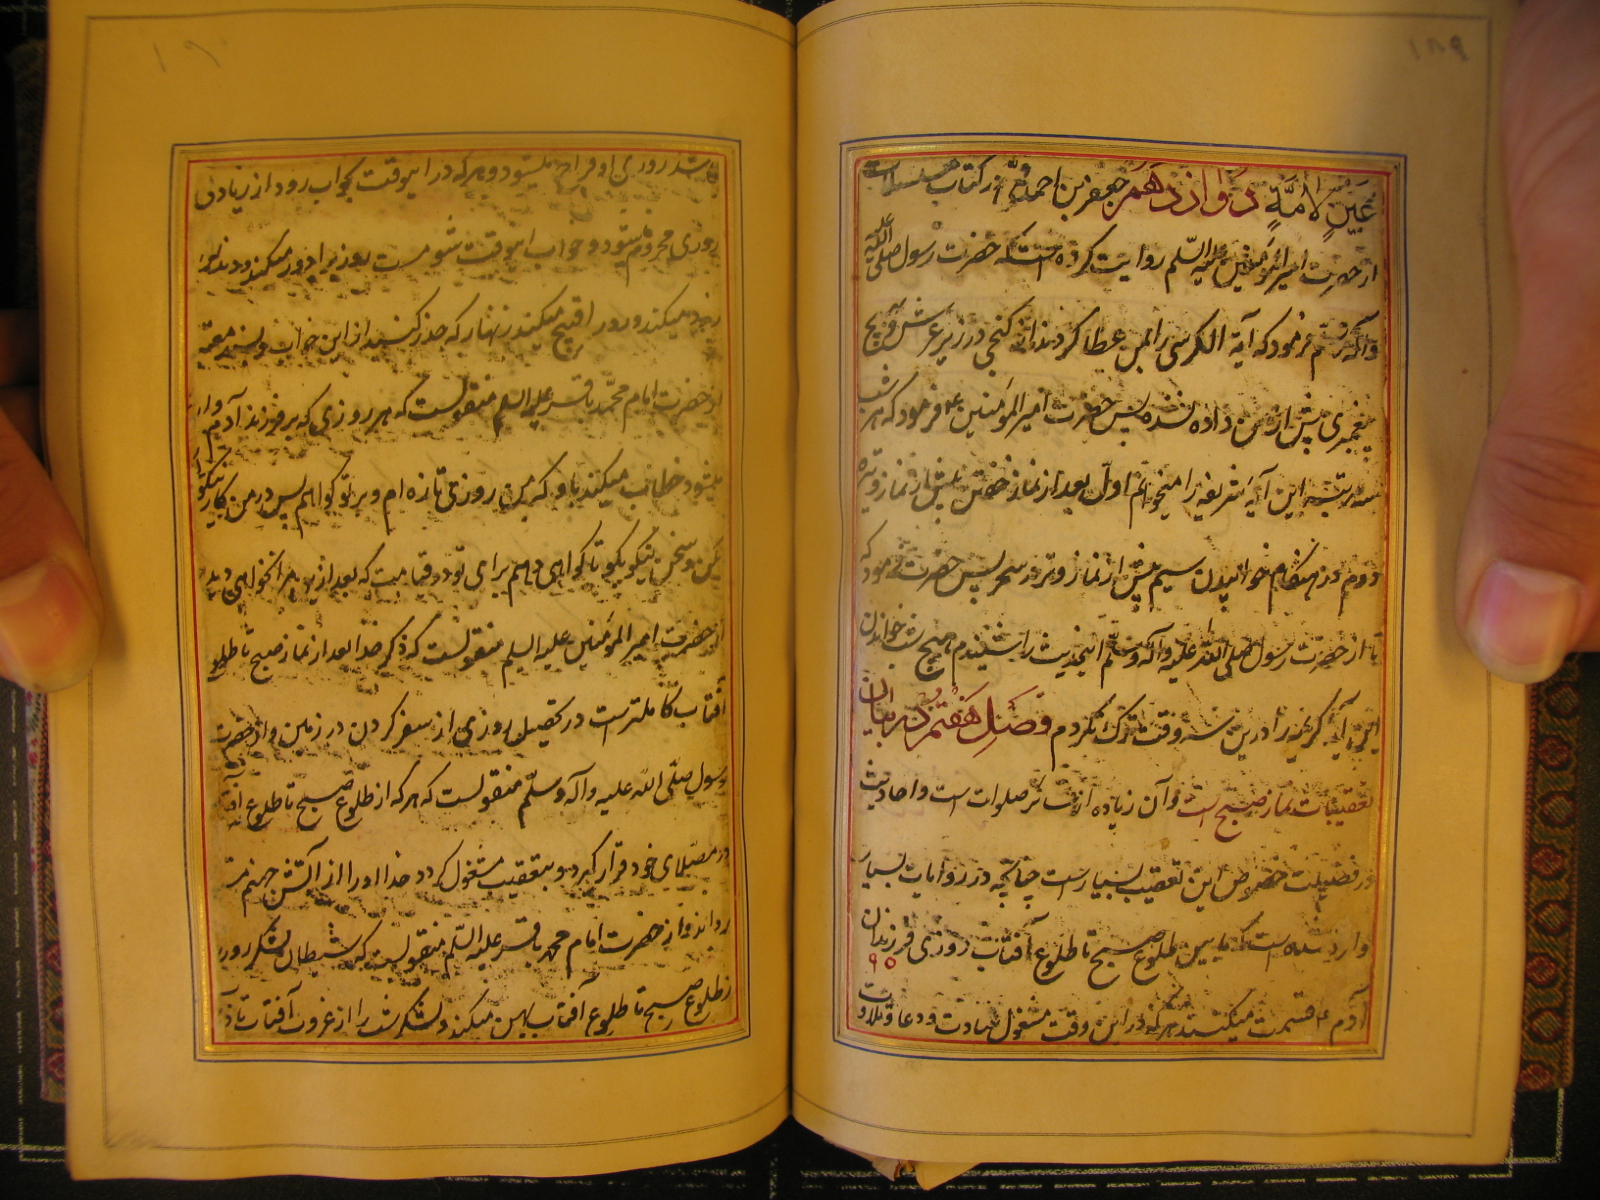 ۱۸۹
عَيْنٍ لامَّةٍ دوازدهم جعفر بن احمد قمی از کتاب مسلسلات
از حضرت امیرالمؤمنین علیه السلم روایت کرده است که حضرت رسول صلی الله علیه
وآله وسلم فرمود که آیة الکرسی را بمن عطا کردند از کنجی در زیر عرش و هیچ
پیغمبری پیش از من داده نشده پس حضرت امیر المؤمنین ع فرمود که هر شب
سه مرتبه این آیه شریفه را میخوانم اول بعد از نماز خفتن پیش از نماز وتیره
دوم در هنگام خوابیدن سیم پیش از نماز وتر در سحر پس حضرت فرمود که
تا از حضرت رسول صلی الله علیه وآله وسلم اینحدیث را شنیدم هیچ شب خواندن
این آیه کریمه را درین سه وقت ترک نکردم وصل هفتم در بیان
تعقیبات نماز صبح است و آن زیاده از سایر صلوات است و احادیث
در فضیلت خصوص این تعقیب بسیار است چنانچه در روایات بسیار
وارد شده است که ما بین طلوع صبح تا طلوع آفتاب روزی فرزندان
۹۵
آدم ع قسمت میکنند هرکه در این وقت مشغول عبادت و دعا و تلاوت
باشد روزی او فراخ میشود و هرکه در این وقت بخواب رود از زیادتی
روزی محروم میشود و خواب این وقت شوم است روزی را دور میکند و
زرد میکند و رو را قبیح میکند زنهار که حذر کنید از این خواب و بسند معتبر
از حضرت امام محمد باقر علیه السلم منقولست که هر روزی که بر فرزند آدم وارد
میشود خطاب میکند باو که من روزی تازه ام و بر تو گواهم پس در من کار نیکو
بکن و سخن نیکو بگو تا گواهی دهم برای تو در قیامت که بعد از این مرا نخواهی دید
از حضرت امیر المؤمنین علیه السلم منقولست که ذکر خدا بعد از نماز صبح تا طلوع
آفتاب کاملتر است در تحصیل روزی از سفر کردن در زمین و از حضرت
رسول صلّی الله علیه وآله وسلّم منقولست که هرکه از طلوع صبح تا طلوع
در مصلای خود قرار گیرد و بتعقیب مشغول گردد خدا او را از آتش جهنم
و از حضرت امام محمد باقر علیه السلم منقولست که شیطان لشکر روز
از طلوع صبح تا طلوع آفتاب پهن میکند و لشکر شب را از غروب آفتاب تا